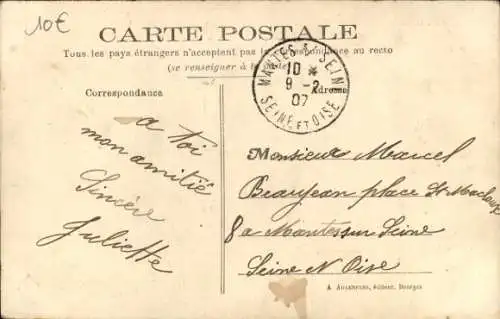 10€
CARTE POSTALE
Tous les pays étrangers n'acceptent pas la correspondance au recto
(se renseigner à la Poste)
MANTES S. SEINE
10 *
9 - 2
07
SEINE ET OISE
Correspondance
Adresse
a toi
mon amitié
Sincère
Juliette
Monsieur Marcel
Beaujean place St Maclou
8 a Mantes sur Seine
Seine N Oise
A AUXENFANS, éditeur, Bourges